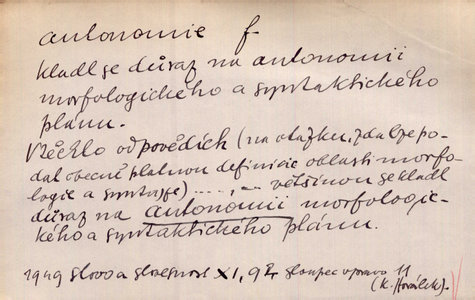 autonomie f
kladl se důraz na autonomii
morfologického a syntaktického
plánu.
Několik odpovědích (na otázku, zda lze po-
dat obecně platnou definicie oblasti morfo-
logie a syntaxe) ......... většinou se kladl
důraz na autonomii morfologic-
kého a syntaktického plánu.
1949 Slovo a slovesnost XI, 92 sloupec vpravo 11
(K. Horálek).